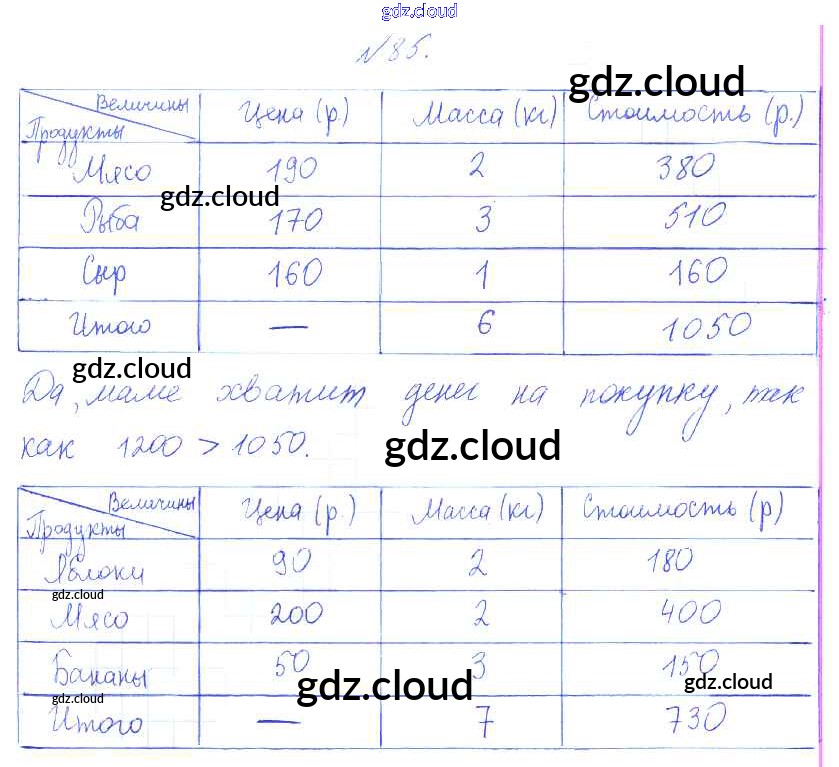 gdz.cloud
№85.
gdz.cloud
Величины Цена (р.) Масса (кг) Стоимость (р.)
Продукты
Мясо 190 2 380
gdz.cloud
Рыба 170 3 510
Сыр 160 1 160
Итого — 6 1050
gdz.cloud
Да, маме хватит денег на покупку, так
как 1200 > 1050.
gdz.cloud
Величины Цена (р.) Масса (кг) Стоимость (р)
Продукты
Яблоки 90 2 180
gdz.cloud
Мясо 200 2 400
Бананы 50 3 150
gdz.cloud
gdz.cloud
gdz.cloud
Итого — 7 730